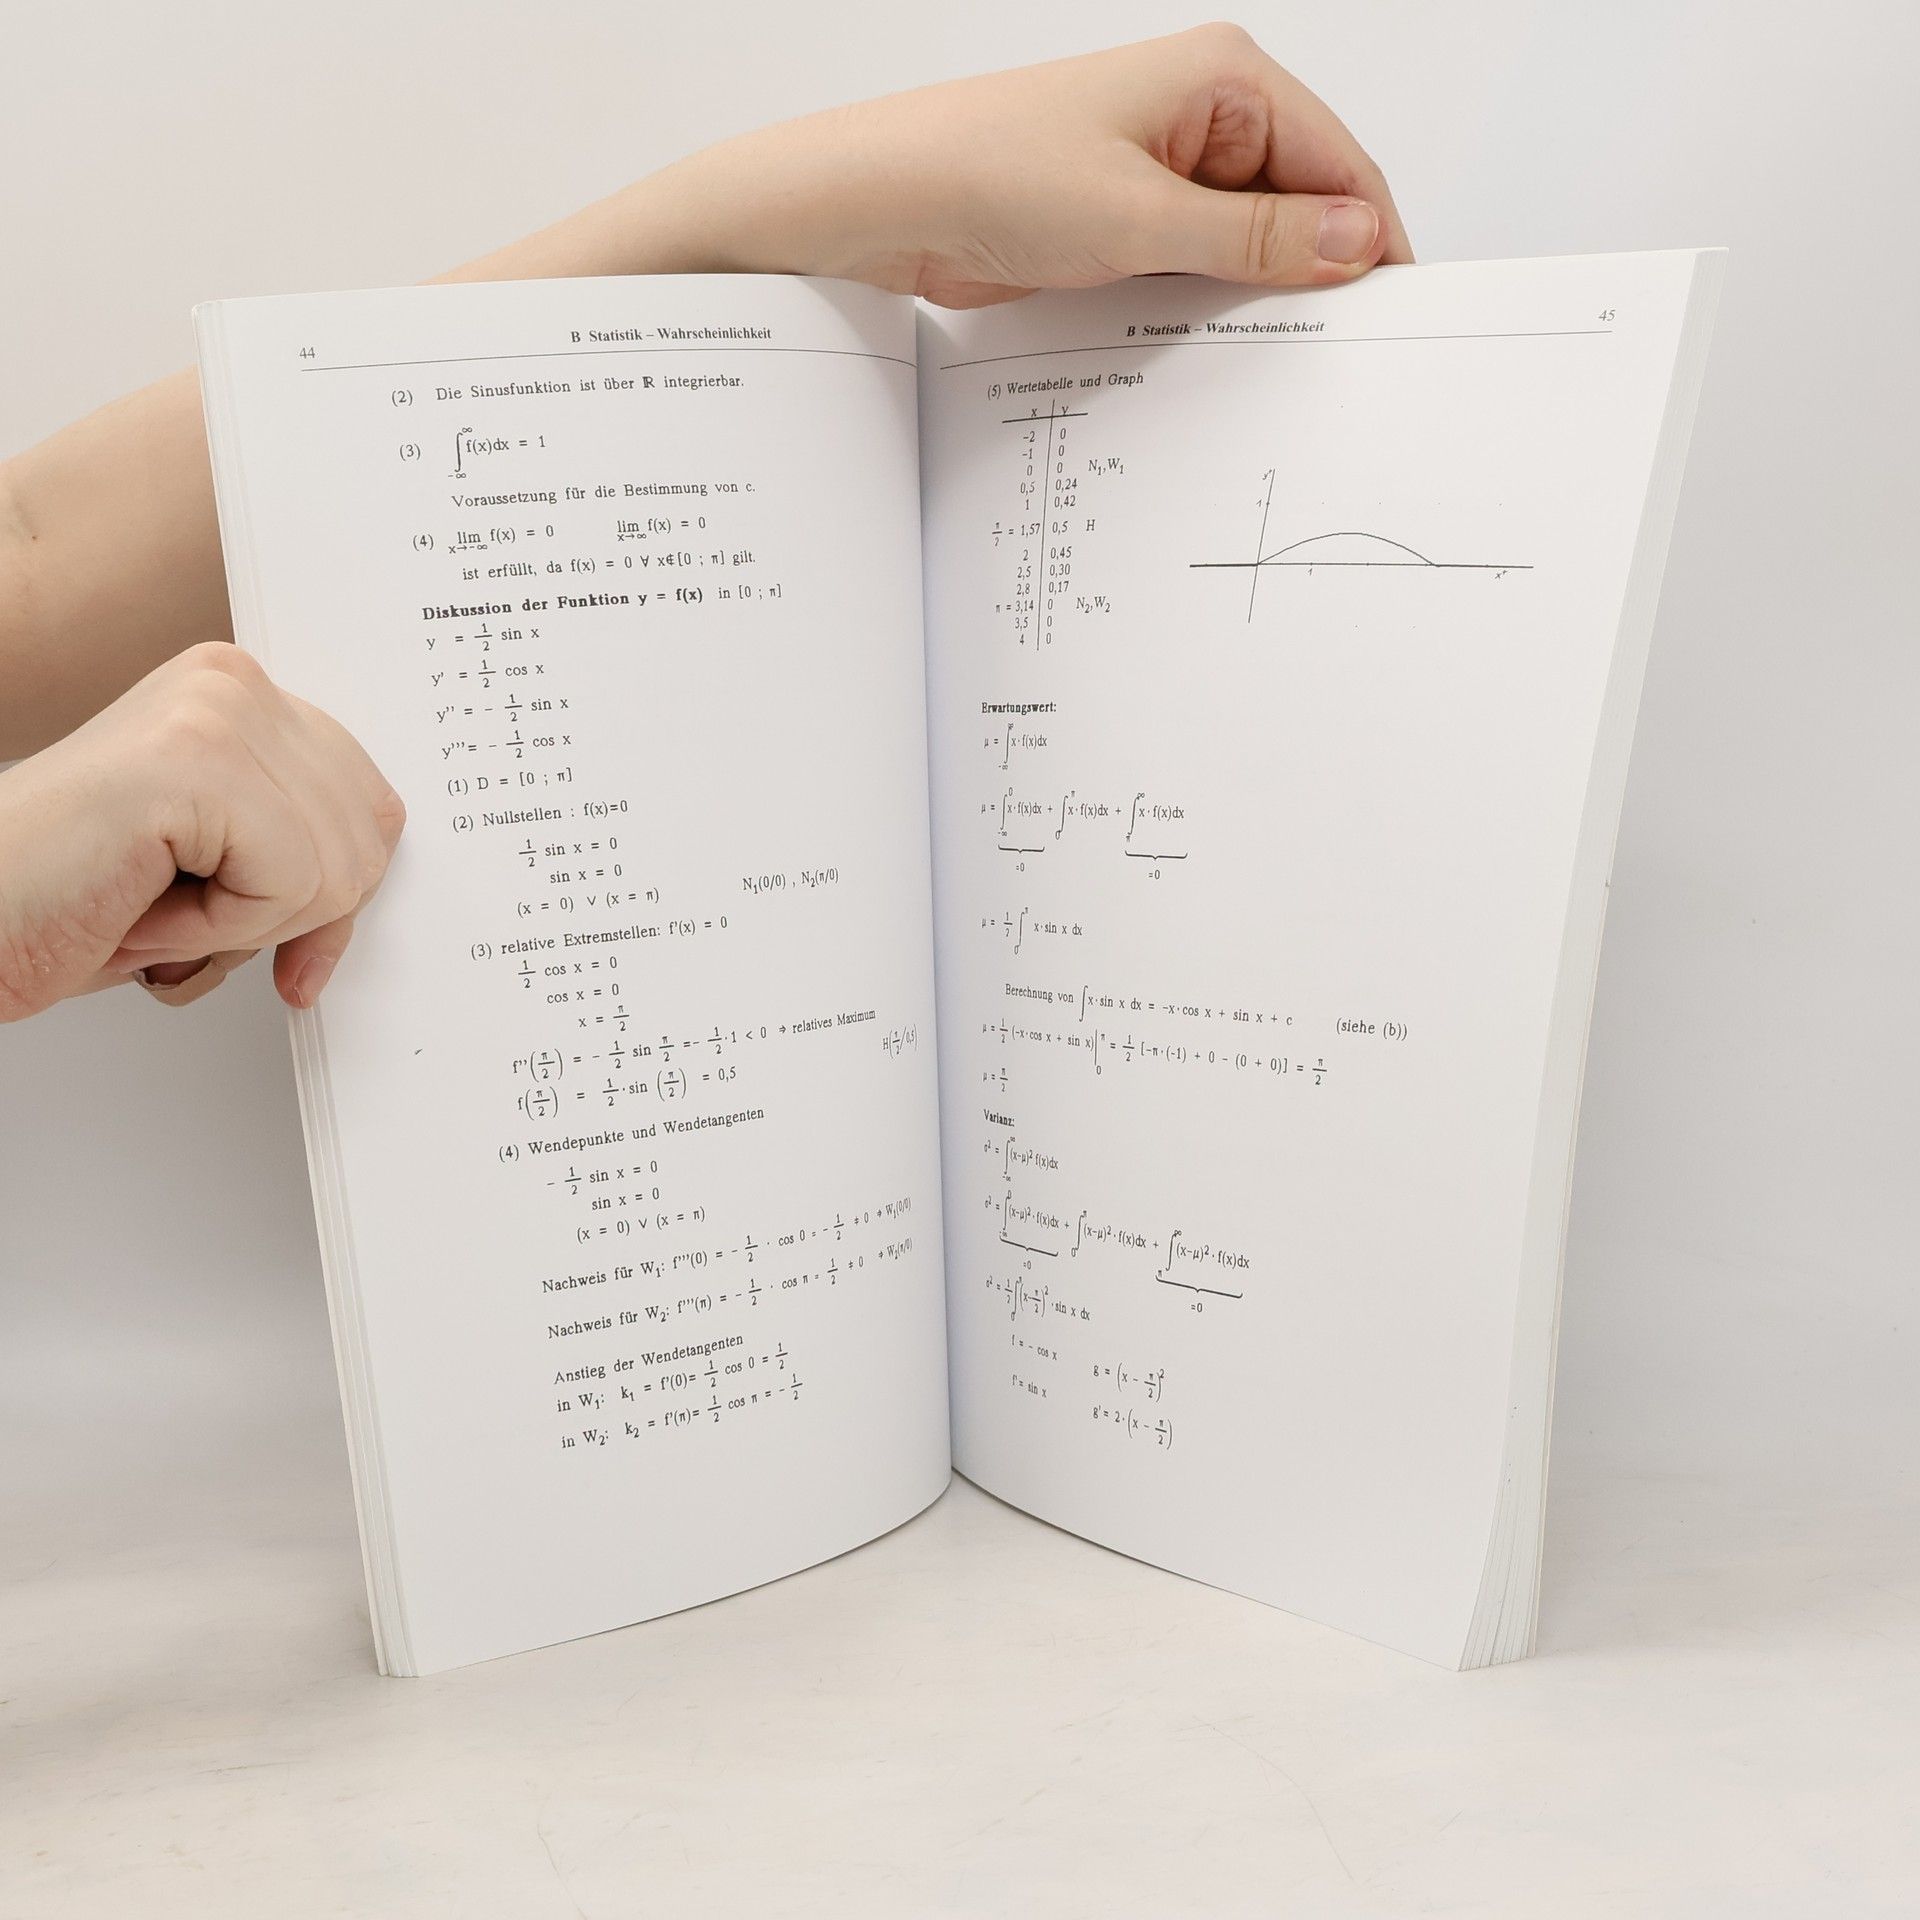 44
B Statistik – Wahrscheinlichkeit
(2) Die Sinusfunktion ist über ℝ integrierbar.
(3) ∫_{-∞}^{∞} f(x)dx = 1
Voraussetzung für die Bestimmung von c.
(4) lim_{x→-∞} f(x) = 0 lim_{x→∞} f(x) = 0
ist erfüllt, da f(x) = 0 ∀ x∉[0 ; π] gilt.
Diskussion der Funktion y = f(x) in [0 ; π]
y = 1/2 sin x
y' = 1/2 cos x
y'' = - 1/2 sin x
y'''= - 1/2 cos x
(1) D = [0 ; π]
(2) Nullstellen : f(x)=0
1/2 sin x = 0
sin x = 0
(x = 0) ∨ (x = π) N₁(0/0) , N₂(π/0)
(3) relative Extremstellen: f'(x) = 0
1/2 cos x = 0
cos x = 0
x = π/2
f''(π/2) = - 1/2 sin π/2 =- 1/2·1 < 0 ⇒ relatives Maximum
f(π/2) = 1/2·sin (π/2) = 0,5 H(π/2/0,5)
(4) Wendepunkte und Wendetangenten
- 1/2 sin x = 0
sin x = 0
(x = 0) ∨ (x = π)
Nachweis für W₁: f'''(0) = - 1/2 · cos 0 = - 1/2 ≠ 0 ⇒ W₁(0/0)
Nachweis für W₂: f'''(π) = - 1/2 · cos π = 1/2 ≠ 0 ⇒ W₂(π/0)
Anstieg der Wendetangenten
in W₁: k₁ = f'(0)= 1/2 cos 0 = 1/2
in W₂: k₂ = f'(π)= 1/2 cos π = - 1/2
B Statistik – Wahrscheinlichkeit
45
(5) Wertetabelle und Graph
x y
-2 0
-1 0
0 0 N₁,W₁
0,5 0,24
1 0,42
π/2 = 1,57 0,5 H
2 0,45
2,5 0,30
2,8 0,17
π = 3,14 0 N₂,W₂
3,5 0
4 0
y
1
1
x
Erwartungswert:
μ = ∫_{-∞}^{∞} x·f(x)dx
μ = ∫_{-∞}^{0} x·f(x)dx + ∫_{0}^{π} x·f(x)dx + ∫_{π}^{∞} x·f(x)dx
=0 =0
μ = 1/2 ∫_{0}^{π} x·sin x dx
Berechnung von ∫x·sin x dx = -x·cos x + sin x + c (siehe (b))
μ = 1/2 (-x·cos x + sin x)|_{0}^{π} = 1/2 [-π·(-1) + 0 - (0 + 0)] = π/2
μ = π/2
Varianz:
σ² = ∫_{-∞}^{∞} (x-μ)² f(x)dx
σ² = ∫_{-∞}^{0} (x-μ)²·f(x)dx + ∫_{0}^{π} (x-μ)²·f(x)dx + ∫_{π}^{∞} (x-μ)²·f(x)dx
=0 =0
σ² = 1/2 ∫_{0}^{π} (x-π/2)²·sin x dx
f = - cos x g = (x - π/2)²
f'= sin x g' = 2·(x - π/2)